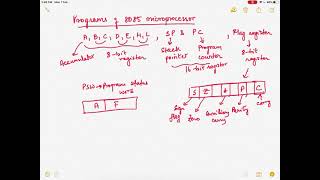 Programs of 8085 microprocessor
A, B, C, D, E, H, L, SP & PC, Flag register
Accumulator 8-bit register Stack pointer Program counter 8-bit register
16-bit register
PSW → Program status word
A F
S Z A P C
Sign flag Zero Auxiliary carry Parity carry